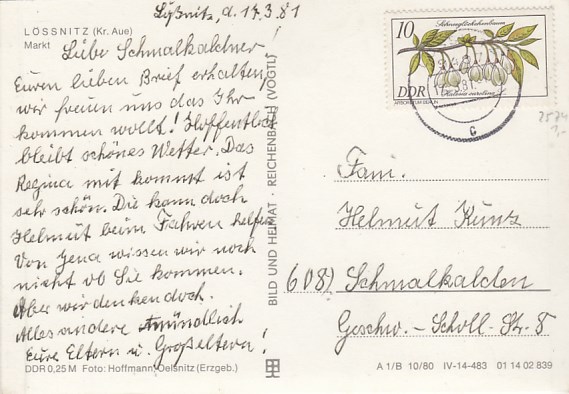 Lößnitz, d. 17.3.81
LÖSSNITZ (Kr. Aue)
Markt
Liebe Schmalkaldner
Euren lieben Brief erhalten,
wir freuen uns das Ihr
kommen wollt! Hoffentlich
bleibt schönes Wetter. Das
Regina mit kommt ist
sehr schön. Die kann doch
Helmut beim Fahren helfen
Von Jena wissen wir noch
nicht ob Sie kommen.
Aber wir denken doch.
Alles andere mündlich
Eure Eltern u. Großeltern!
DDR 0,25 M Foto: Hoffmann, Oelsnitz (Erzgeb.)
BILD UND HEIMAT · REICHENBACH (VOGTL)
10
Schneeglöckchenbaum
DDR
Halesia carolina L.
ARBORETUM BERLIN
Fam.
Helmut Kunz
608) Schmalkalden
Geschw.-Scholl-Str. 8
A 1/B 10/80 IV-14-483 01 14 02 839